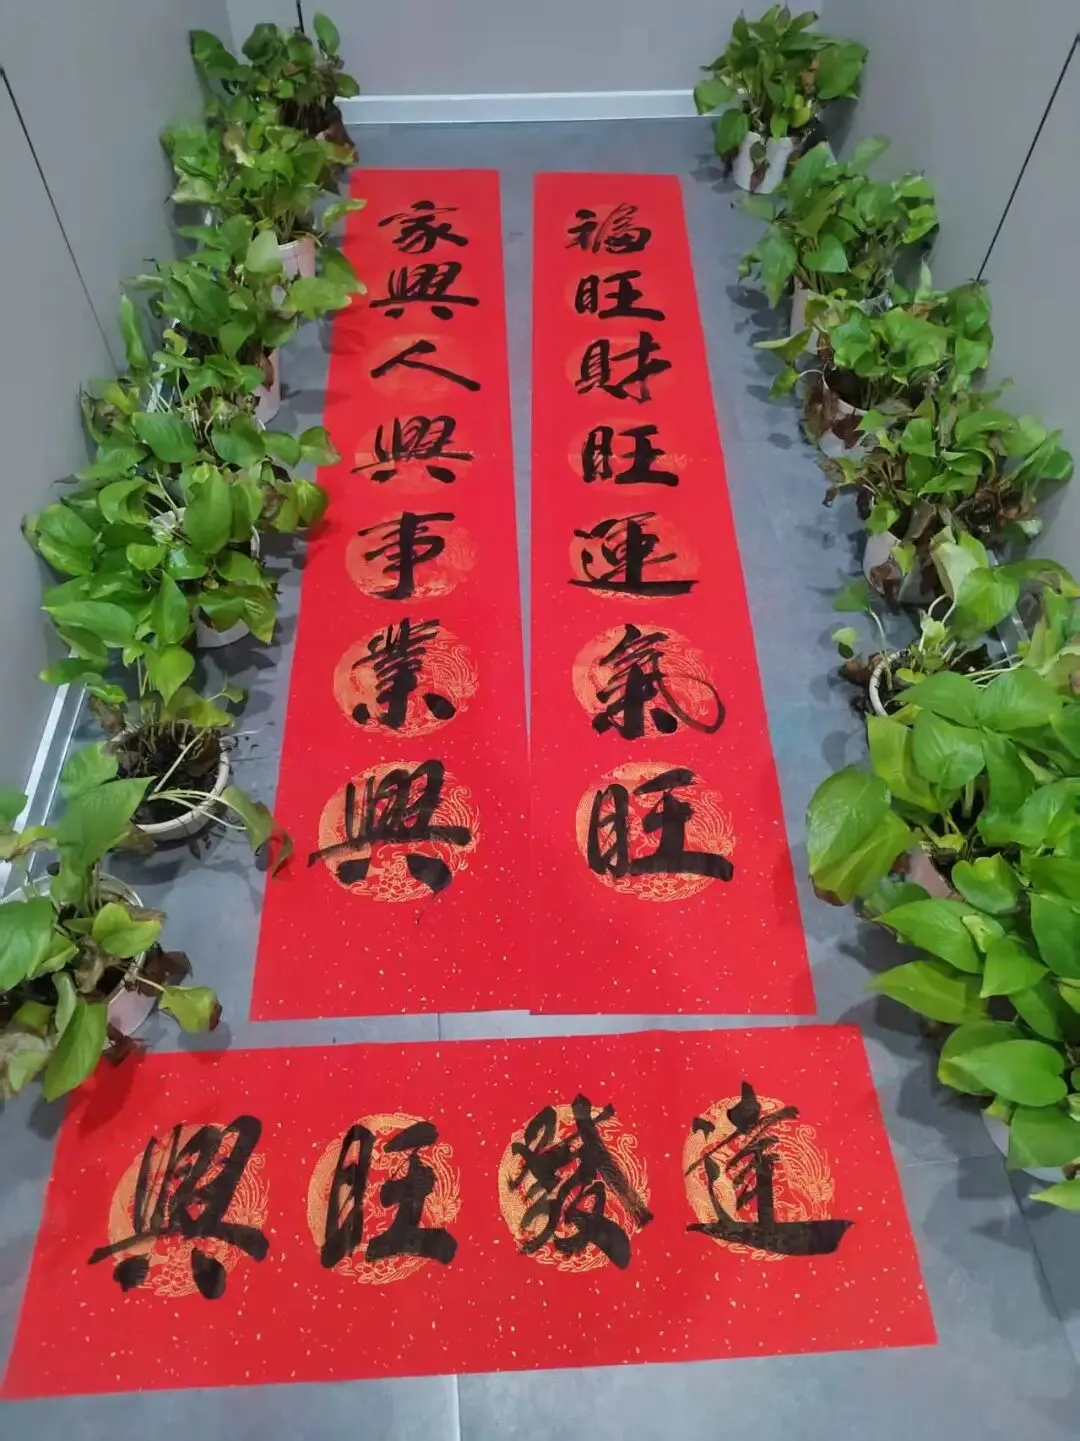 家興人興事業興
福旺財旺運氣旺
興旺發達